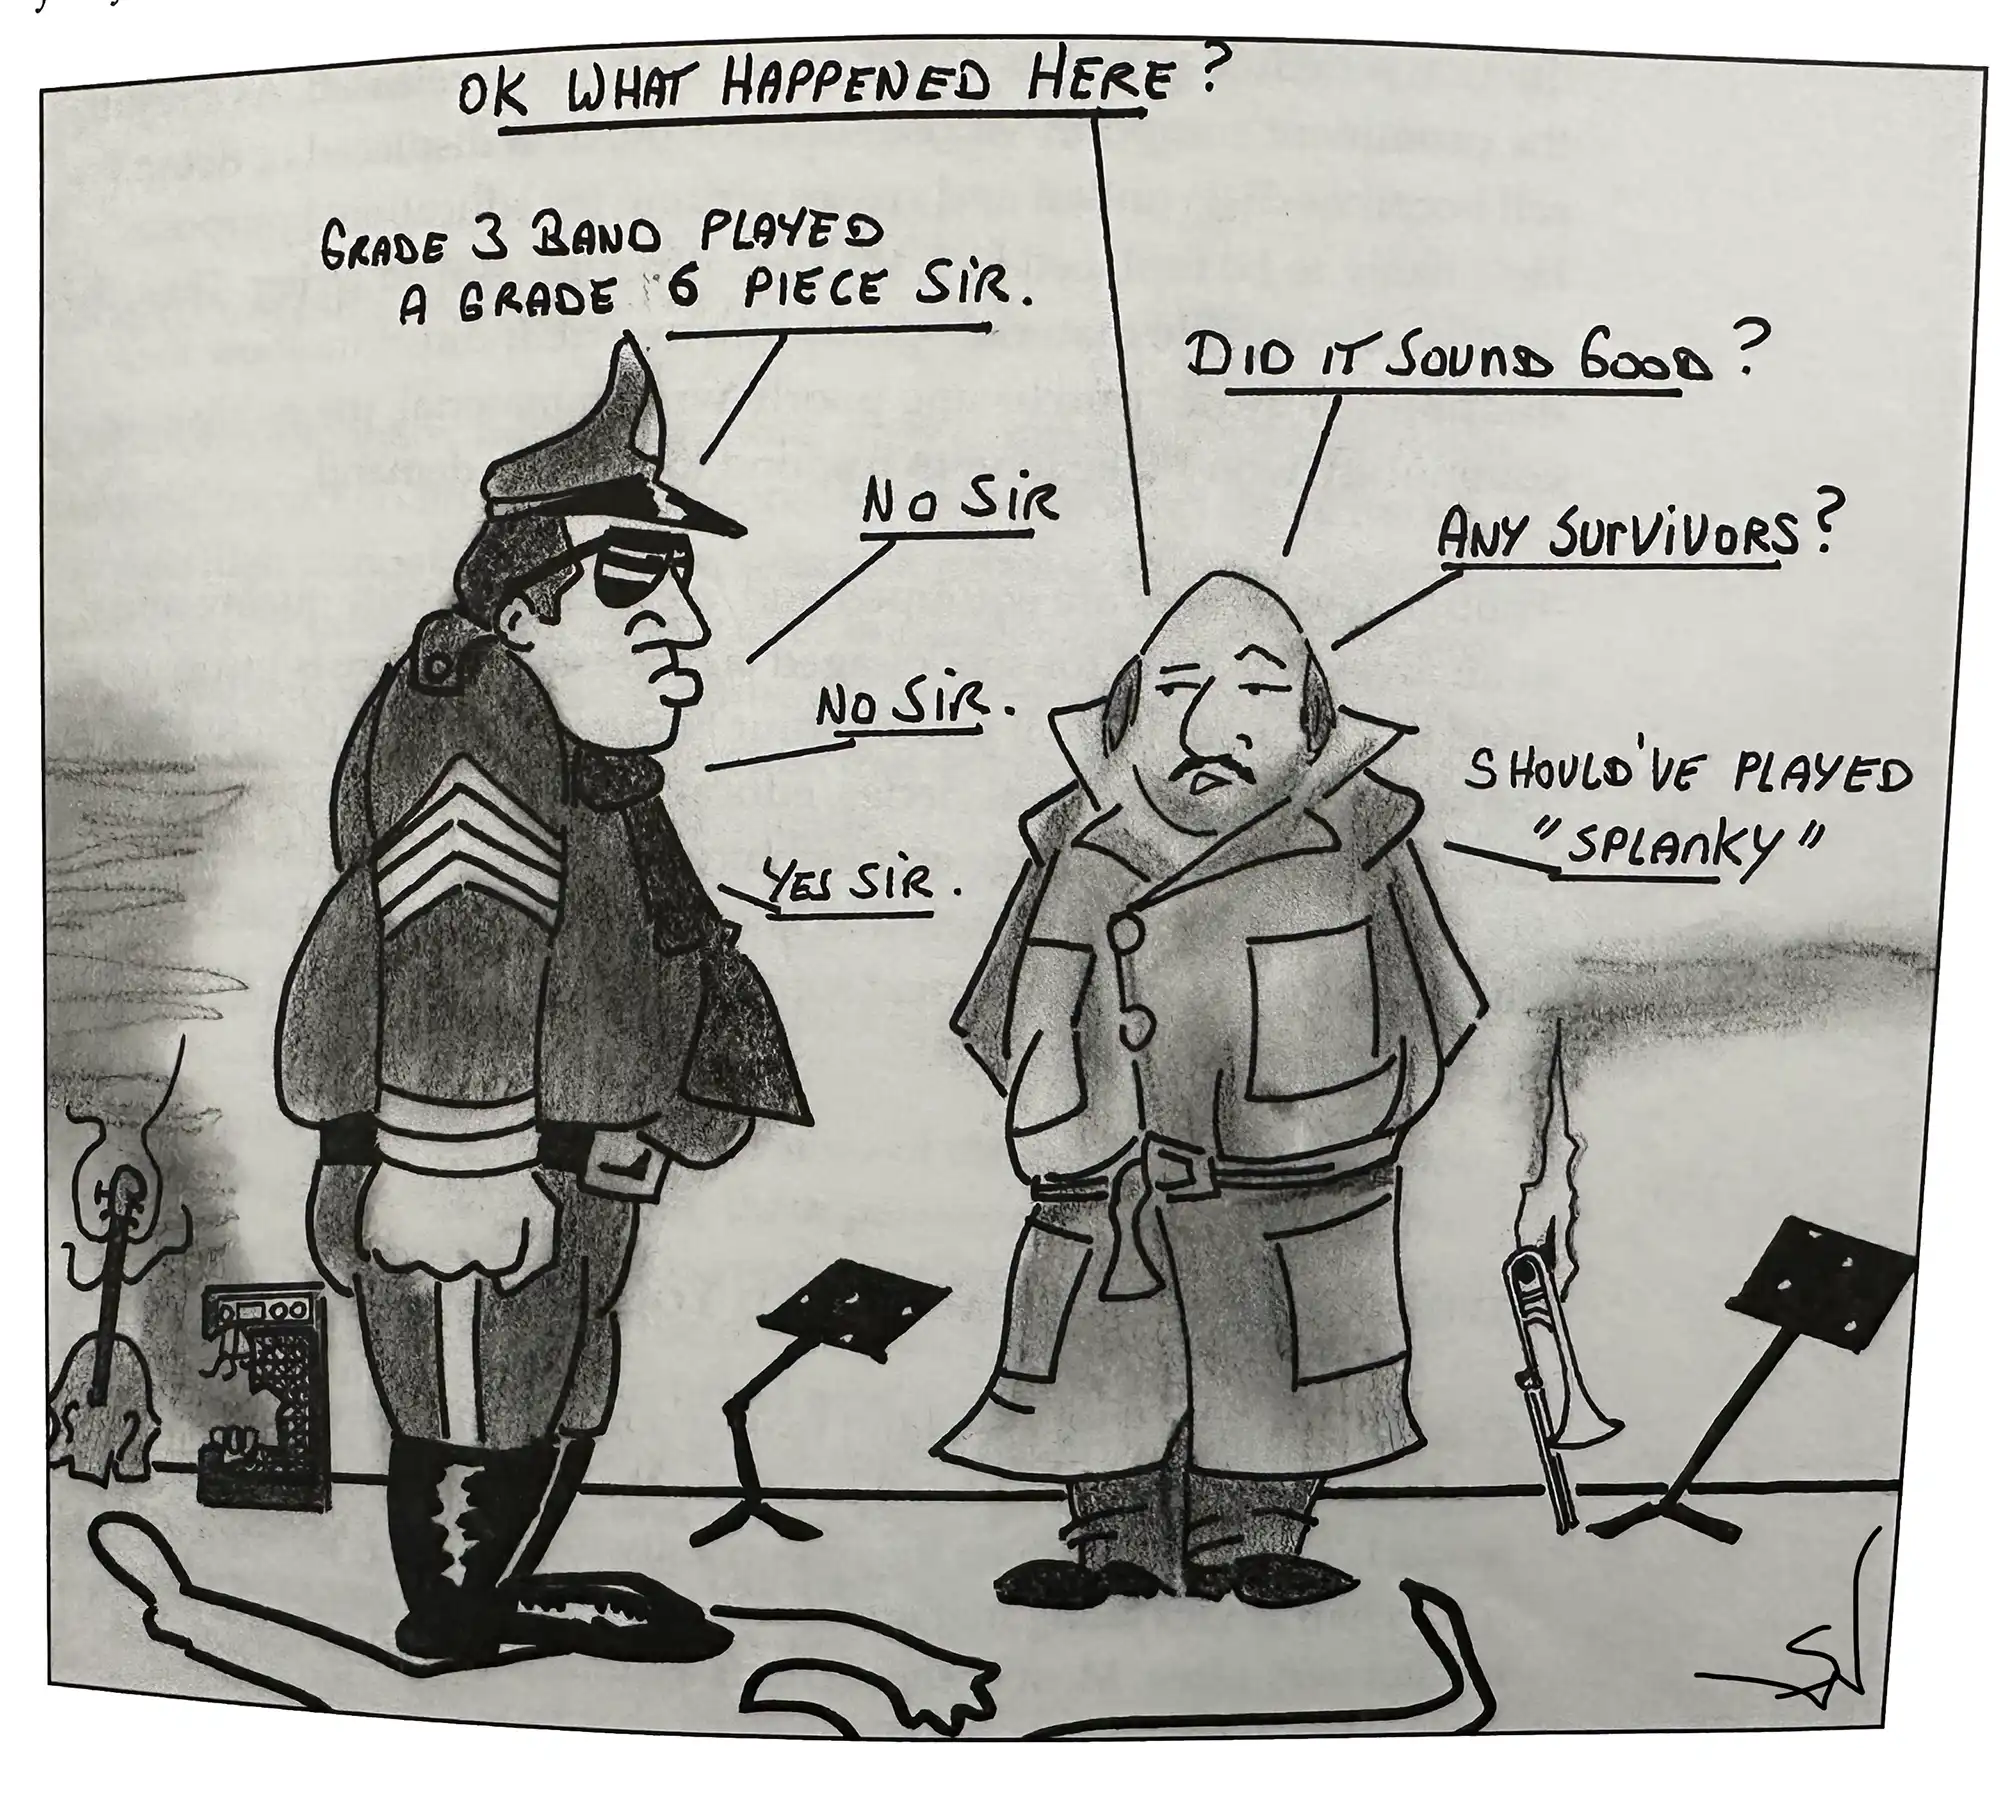 OK WHAT HAPPENED HERE?
GRADE 3 BAND PLAYED
A GRADE 6 PIECE SIR.
DID IT SOUND GOOD?
NO SIR
ANY SURVIVORS?
NO SIR.
SHOULD'VE PLAYED
"SPLANKY"
YES SIR.